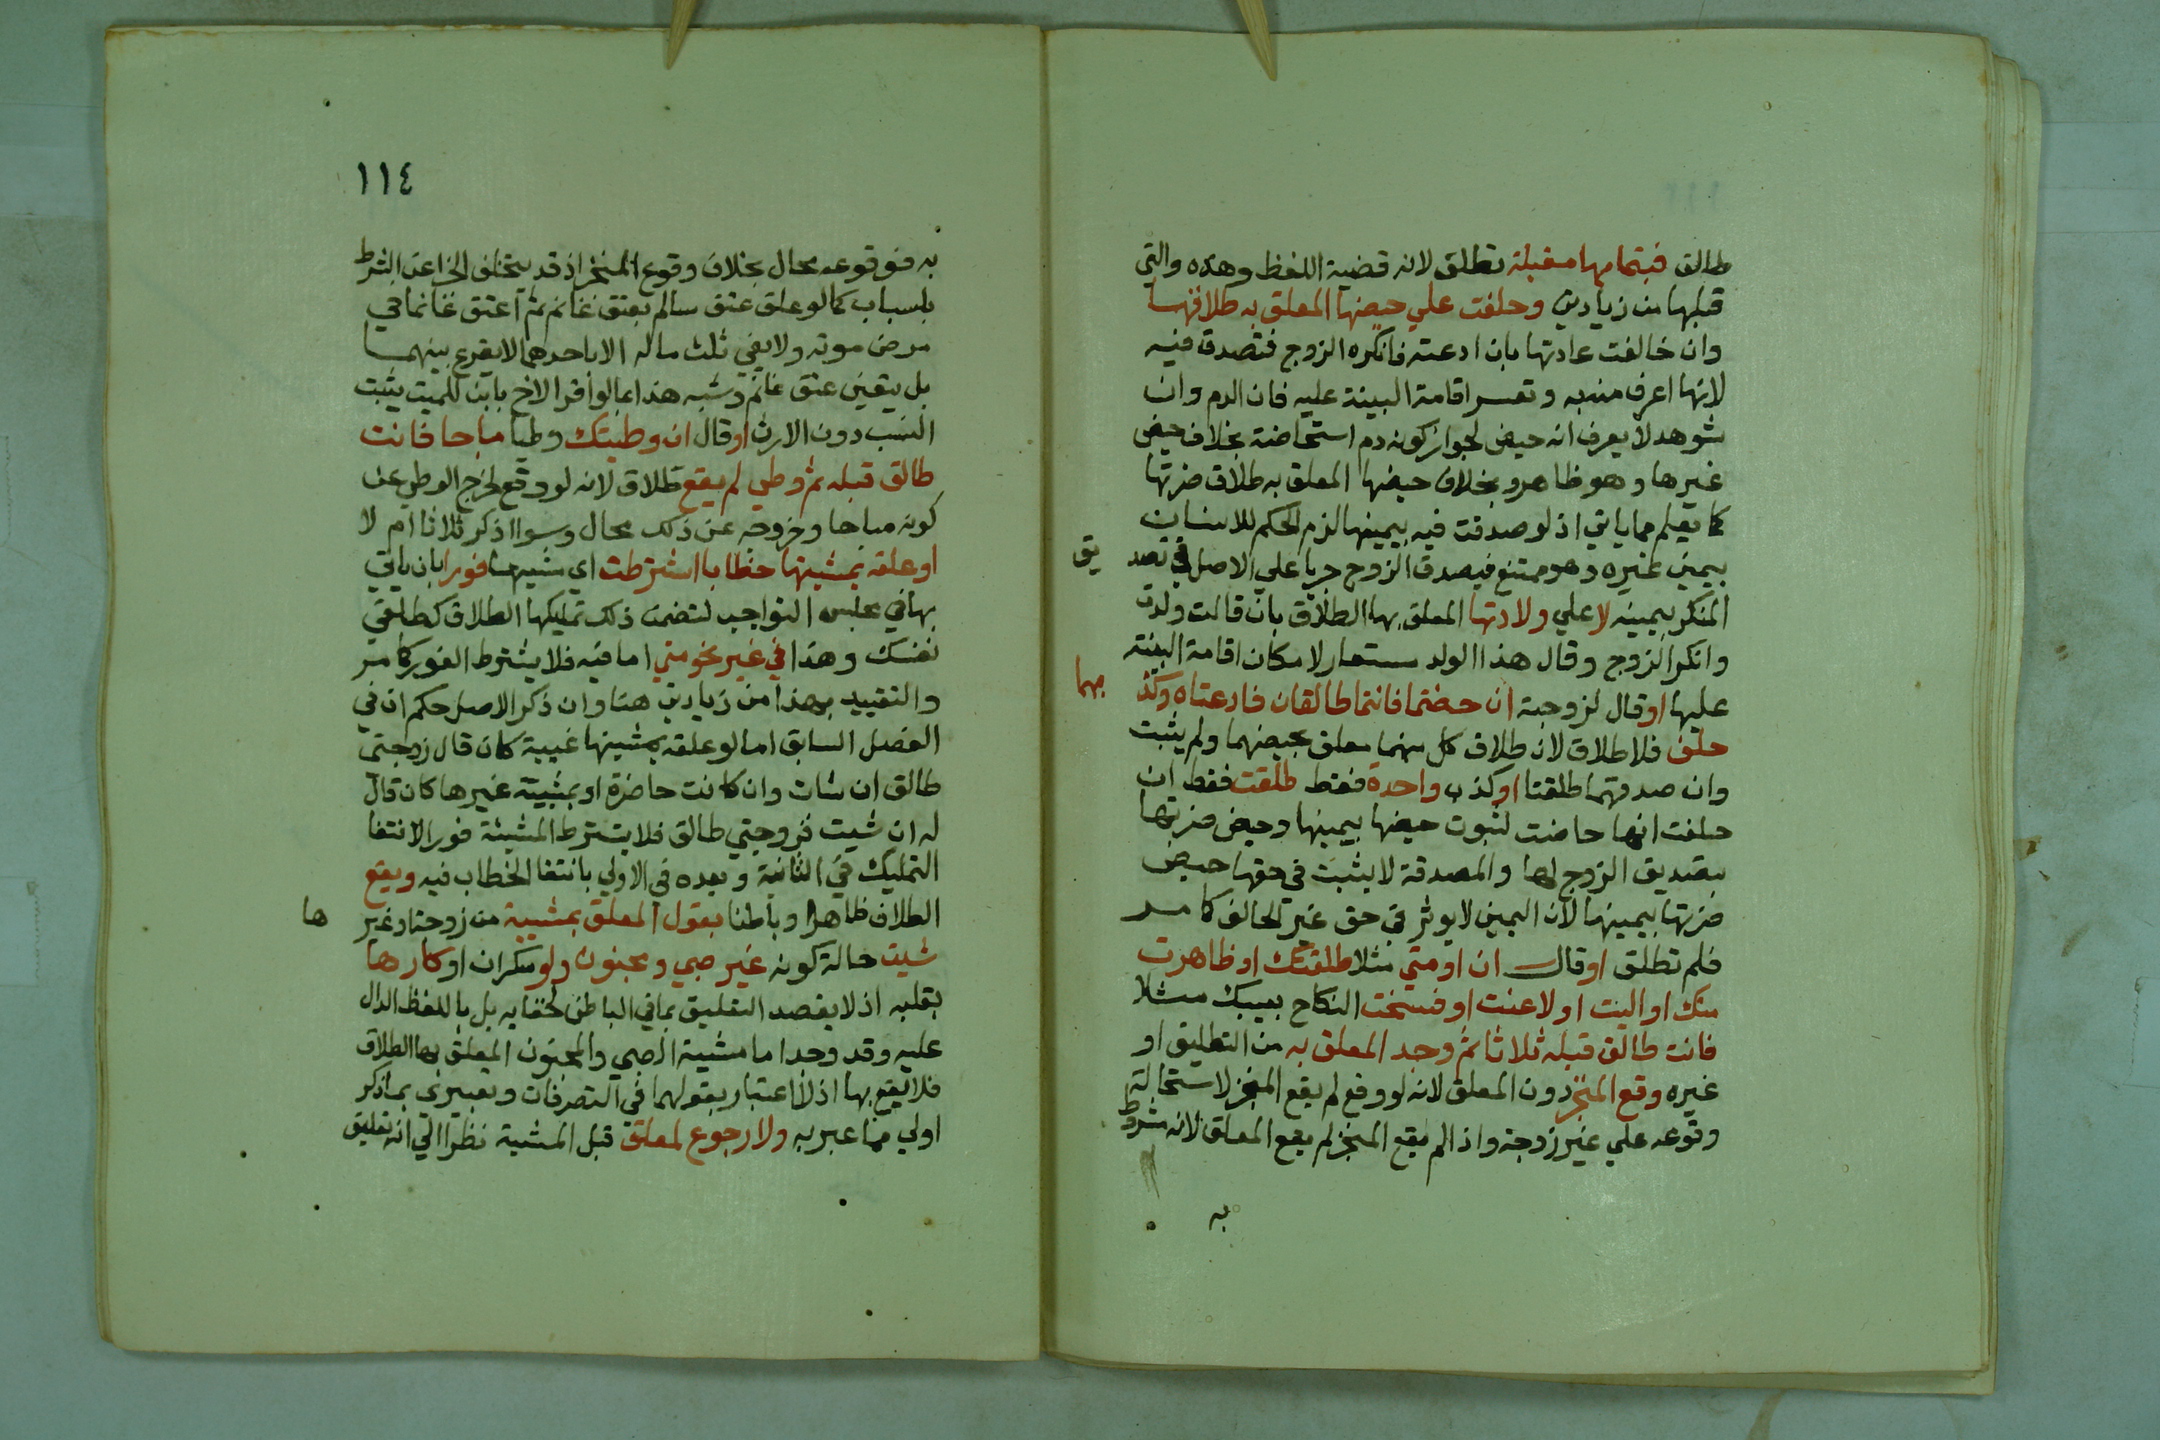 طالق فبتمامها مقبلة تطلق لانه قضية اللفظ وهذه والتي
قبلها من زيادتي وحلفت علي حيضها المعلق به طلاقها
وان خالفت عادتها بان ادعته فانكره الزوج فتصدق فيه
لانها اعرف منه به وتعسر اقامة البينة عليه فان الدم وان
شوهد لا يعرف انه حيض لجواز كونه دم استحاضة بخلاف حيض
غيرها وهو ظاهر وبخلاف حيضها المعلق به طلاق ضرتها
كما يعلم مما ياتي اذ لو صدقت فيه بيمينها لزم الحكم للانسان
بيمين غيره وهو ممتنع فيصدق الزوج جريا علي الاصل في تصد يق
المنكر بيمينه لا علي ولادتها المعلق بها الطلاق بان قالت ولدت
وانكر الزوج وقال هذا الولد مستعار لامكان اقامة البينة
عليها او قال لزوجية ان حضتما فانتما طالقان فادعتاه وكذ بهما
حلف فلا طلاق لان طلاق كل منهما معلق بحيضهما ولم يثبت
وان صدقهما طلقتا او كذب واحدة فقط طلقت فقط ان
حلفت انها حاضت لثبوت حيضها بيمينها وحيض ضرتها
بتصديق الزوج لها والمصدقة لا يثبت في حقها حيض
ضرتها بيمينها لان اليمين لا يوثر في حق غير الحالف كما مر
فلم تطلق او قال ان او متي مثلا طلقتك او ظاهرت
منك او اليت او لاعنت او فسخت النكاح بعيبك مثلا
فانت طالق قبله ثلاثا ثم وجد المعلق به من التطليق او
غيره وقع المنجز دون المعلق لانه لو وقع لم يقع المنجز لاستحالة
وقوعه علي غير زوجة واذا لم يقع المنجز لم يقع المعلق لانه مشروط
به
١١٤
به فوقوعه محال بخلاف وقوع المنجز اذ قد يتخلف الجزا عن الشرط
باسباب كما لو علق عتق سالم بعتق غانم ثم اعتق غانما في
مرض موته ولا يفي ثلث ماله الا باحدهما لا يقرع بينهما
بل يتعين عتق غانم وشبه هذا بما لو اقر الاخ بابن للميت يثبت
النسب دون الارث او قال ان وطيتك وطيا مباحا فانت
طالق قبله ثم وطي لم يقع طلاق لانه لو وقع لخرج الوطي عن
كونه مباحا وخروجه عن ذلك محال وسوا اذكر ثلاثا ام لا
او علقه بمشيتها خطابا اشترطت اي مشيتها فورا بان ياتي
بها في مجلس التواجب لتضمن ذلك تمليكها الطلاق كطلقي
نفسك وهذا في غير نحو متي اما فيه فلا يشترط الفور كما مر
والتقييد بهذا من زيادتي هنا وان ذكر الاصل حكم ان في
الفصل السابق اما لو علقه بمشيتها غيبة كان قال زوجتي
طالق ان شات وان كانت حاضرة او بمشية غيرها كان قال
له ان شيت فزوجتي طالق فلا يشترط المشيئة فورا لانتفا
التمليك في الثانية وبعده في الاولي بانتفا الخطاب فيه ويقع
الطلاق ظاهرا وباطنا بقول المعلق بمشيية من زوجة او غير ها
شيت حالة كونه غير صبي ومجنون ولو سكران او كارها
بقلبه اذ لا يقصد التعليق بما في الباطن لخفايه بل باللفظ الدال
عليه وقد وجد اما مشيية الصبي والمجنون المعلق بها الطلاق
فلا يقع بها اذ لا اعتبار بقولهما في التصرفات وتعبيري بما ذكر
اولي مما عبر به ولا رجوع لمعلق قبل المشية نظرا الي انه تعليق